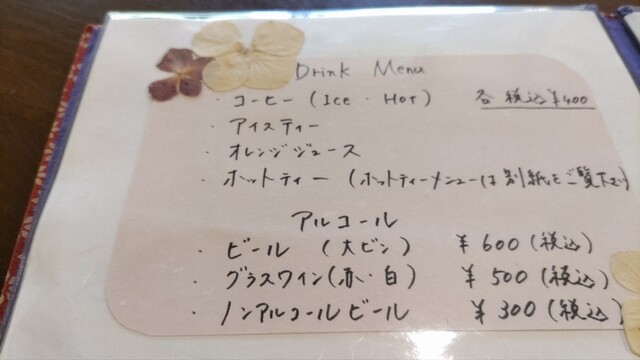 Drink Menu
・コーヒー(Ice・Hot) 各 税込¥400
・アイスティー
・オレンジジュース
・ホットティー(ホットティーメニューは別紙をご覧下さい)
アルコール
・ビール (大ビン) ¥600(税込)
・グラスワイン(赤・白) ¥500(税込)
・ノンアルコールビール ¥300(税込)